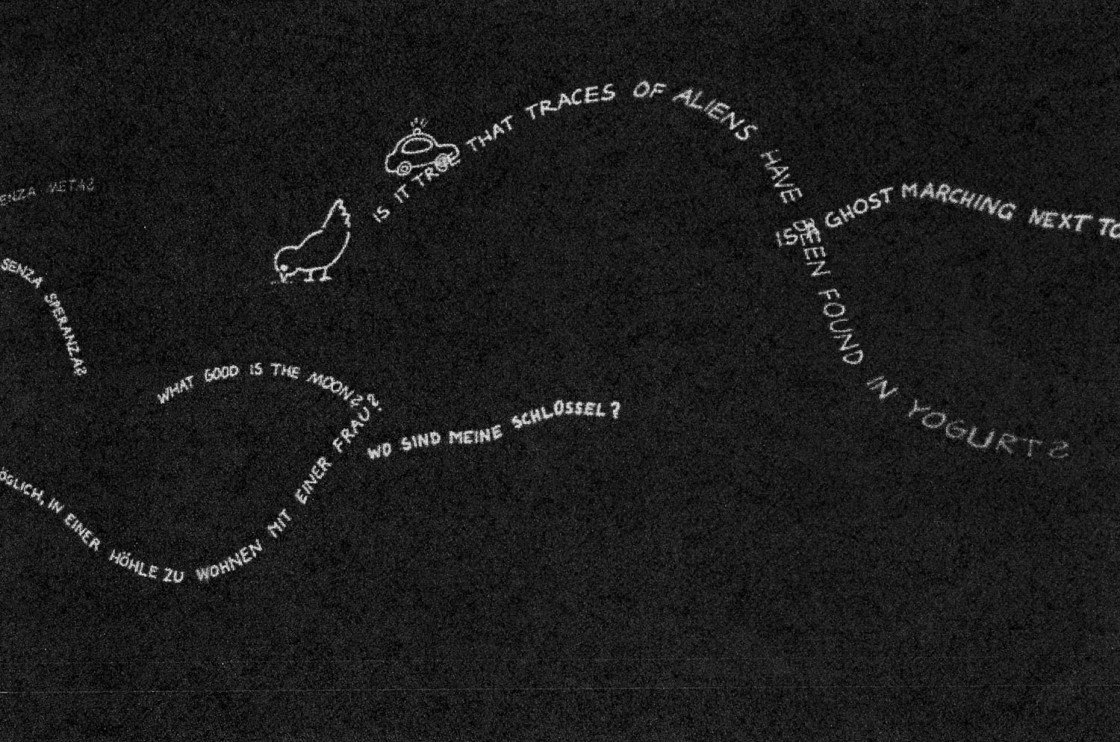 IS IT TRUE THAT TRACES OF ALIENS HAVE BEEN FOUND IN YOGURT?
ENZA META?
IS A GHOST MARCHING NEXT TO
SENZA SPERANZA?
WHAT GOOD IS THE MOON?
WO SIND MEINE SCHLÜSSEL?
ÖGLICH, IN EINER HÖHLE ZU WOHNEN MIT EINER FRAU?